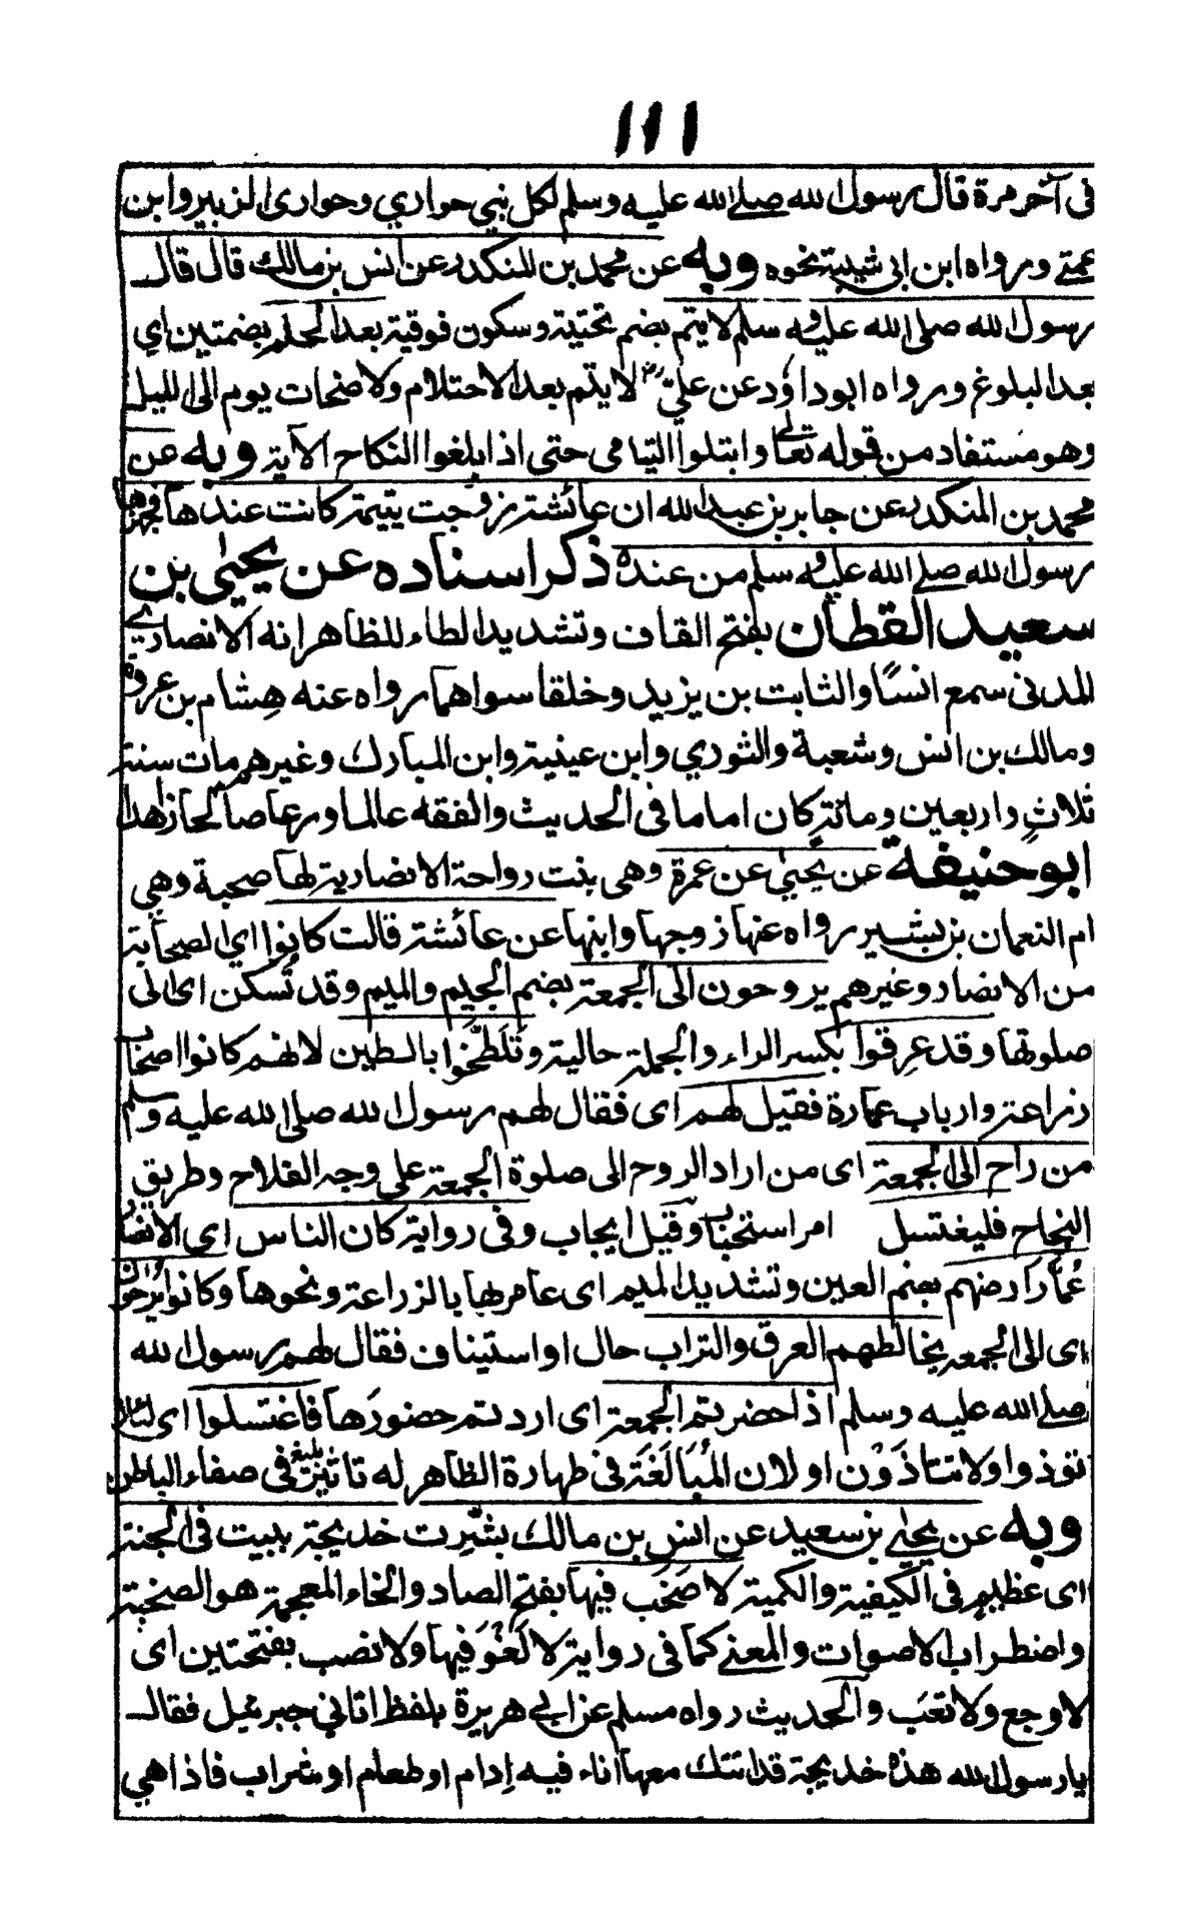 ١١١
فى آخر مرة قال رسول الله صلے الله عليه وسلم لكل نبي حواري وحوارى الزبير وابن
عمتے ورواه ابن ابى شيبة نحوه وبه عن محمد بن المنكدر عن انس بن مالك قال قال
رسول الله صلى الله عليه وسلم لا يتم بضم تحتية وسكون فوقية بعد الحلم بضمتين اي
بعد البلوغ ورواه ابو داؤد عن علي رض لا يتم بعد الاحتلام ولا ضحات يوم الى الليل
وهو مستفاد من قوله تعالے وابتلوا اليتامى حتى اذا بلغوا النكاح الآية وبه عن
محمد بن المنكدر عن جابر بن عبد الله ان عائشة زوجت يتيمة كانت عندها فجهزها
رسول الله صلے الله عليه وسلم من عنده ذكر اسناده عن يحيى بن
سعيد القطان بفتح القاف وتشديد الطاء للظاهر انه الانصاري
المدنى سمع انسًا والثابت بن يزيد وخلقا سواهما رواه عنه هشام بن عروة
ومالك بن انس وشعبة والثوري وابن عينية وابن المبارك وغيرهم مات سنة
ثلاثٍ واربعين ومائة كان اماما فى الحديث والفقه عالما ورعا صالحا زاهدا
ابو حنيفة عن يحيى عن عمرة وهى بنت رواحة الانصارية لها صحبة وهي
ام النعمان بن بشير رواه عنها زوجها وابنها عن عائشة قالت كانوا اي الصحابة
من الانصار وغيرهم يروحون الى الجمعة بضم الجيم والميم وقد تُسكن اى الى
صلوتها وقد عرقوا بكسر الراء والجملة حالية وتَلَطَّخوا بالطين لانهم كانوا اصحاب
زراعة وارباب عمارة فقيل لهم اى فقال لهم رسول الله صلى الله عليه وسلم
من راح الى الجمعة اى من اراد الروح الى صلوة الجمعة على وجه الفلاح وطريق
النجاح فليغتسل امر استحباب وقيل ايجاب وفى رواية كان الناس اي الانصار
عُمّار ارضهم بضم العين وتشديد الميم اى عامريها بالزراعة ونحوها وكانوا يروحون
اى الى الجمعة يخالطهم العرق والتراب حال او استيناف فقال لهم رسول الله
صلے الله عليه وسلم اذا حضرتم الجمعة اى اردتم حضورها فاغتسلوا اى لئلا
تؤذوا ولا تتاذَوْن او لان المُبَالَغَة فى طهارة الظاهر له تاثير بليغ فى صفاء الباطن
وبه عن يحيے بن سعيد عن انس بن مالك بشّرت خديجة ببيت فى الجنة
اى عظيم فى الكيفية والكمية لا صَخَب فيها بفتح الصاد والخاء المعجمة هو الصخبة
واضطراب الاصوات والمعنے كما فى رواية لا لَغْوَ فيها ولا نصب بفتحتين اى
لا وجع ولا تعَب والحديث رواه مسلم عن ابي هريرة بلفظ اتاني جبرئيل فقال
يا رسول الله هذه خديجة قد اتتك معها اناء فيه إدام او طعام او شراب فاذا هي